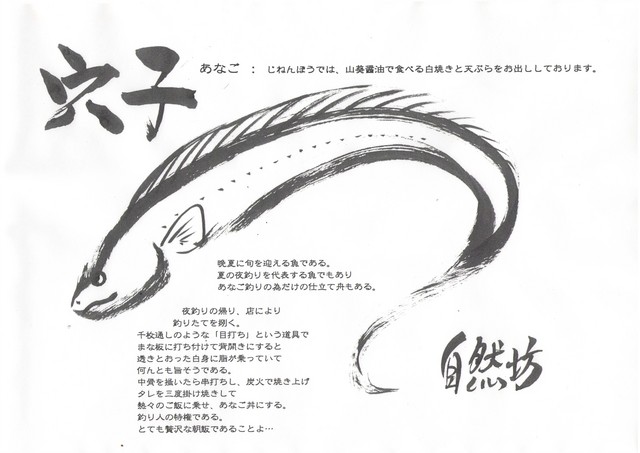 穴子
あなご ： じねんぼうでは、山葵醤油で食べる白焼きと天ぷらをお出ししております。
晩夏に旬を迎える魚である。
夏の夜釣りを代表する魚でもあり
あなご釣りの為だけの仕立て舟もある。
夜釣りの帰り、店により
釣りたてを捌く。
千枚通しのような「目打ち」という道具で
まな板に打ち付けて背開きにすると
透きとおった白身に脂が乗っていて
何んとも旨そうである。
中骨を掻いたら串打ちし、炭火で焼き上げ
タレを三度掛け焼きして
熱々のご飯に乗せ、あなご丼にする。
釣り人の特権である。
とても贅沢な朝飯であることよ…
自然坊